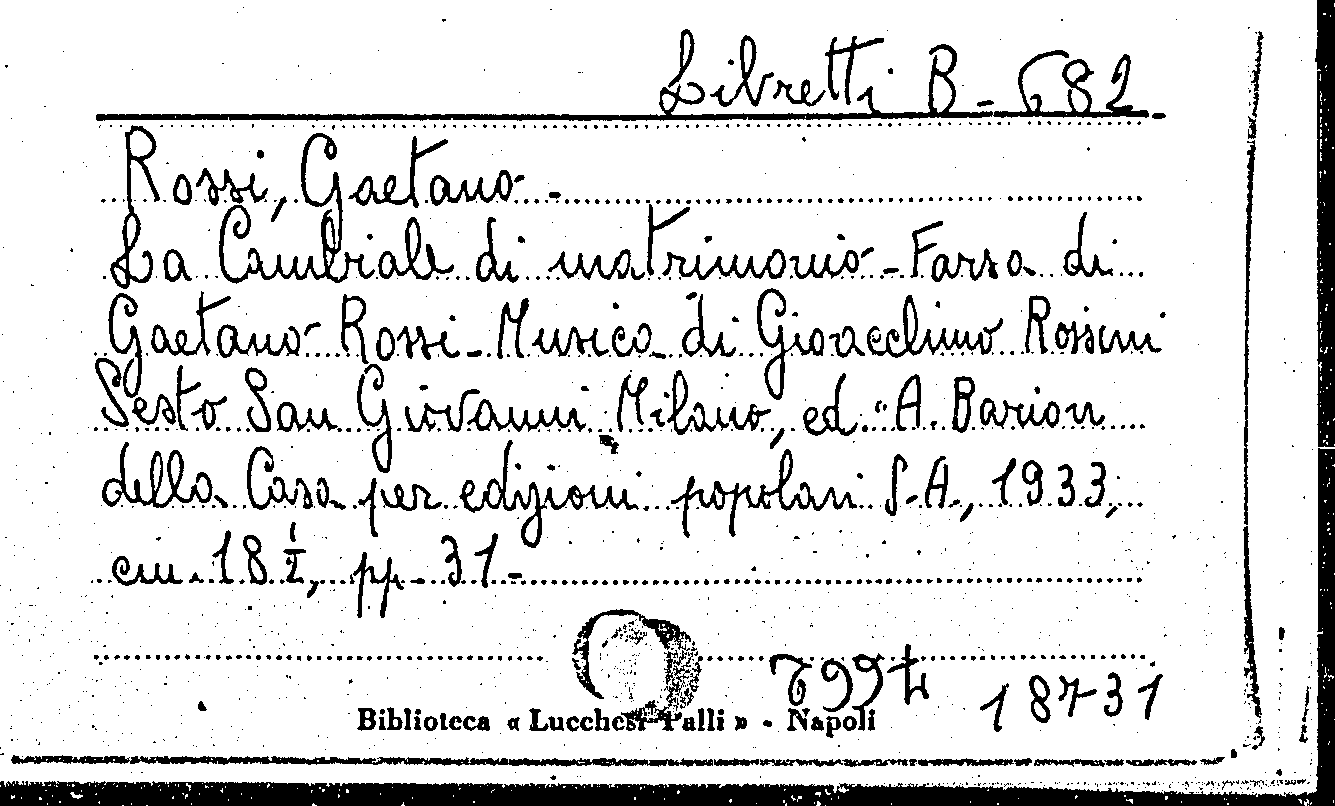 Libretti B - 682
Rossi, Gaetano -
La Cambiale di matrimonio - Farsa di
Gaetano Rossi - Musica di Gioacchino Rossini
Sesto San Giovanni Milano, ed. "A. Barion
della Casa per edizioni popolari S.A., 1933,
cm. 18 1/2, pp. 31 -
18731
Biblioteca « Lucchesi-Palli » - Napoli